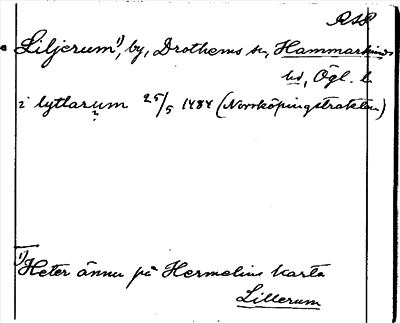 RAP
Liljerum 1), by, Drothems sn, Hammarkinds
hd, Ögl. l.
i lytlarum 25/5 1484 (Norrköpingstrakten)
?
1) Heter ännu på Hermelins karta
Lillerum